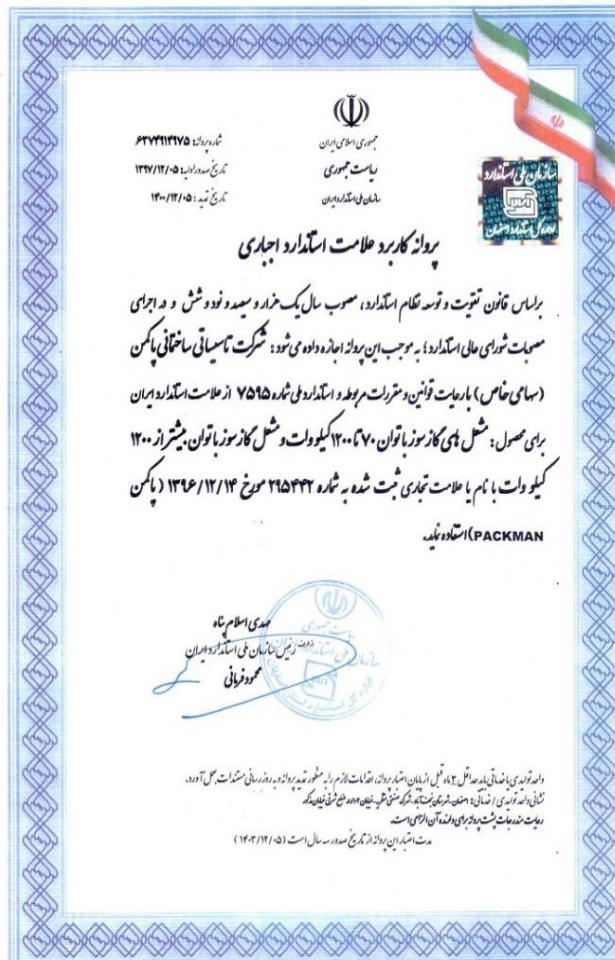 جمهوری اسلامی ایران
ریاست جمهوری
سازمان ملی استاندارد ایران
شماره پروانه: ۶۳۷۴۹۱۴۹۷۵
تاریخ صدور اولیه: ۱۳۹۷/۱۲/۰۵
تاریخ تمدید: ۱۴۰۰/۱۲/۰۵
سازمان ملی استاندارد
اداره کل استاندارد اصفهان
پروانه کاربرد علامت استاندارد اجباری
براساس قانون تقویت و توسعه نظام استاندارد، مصوب سال یک هزار و سیصد و نود و شش و در اجرای
مصوبات شورای عالی استاندارد؛ به موجب این پروانه اجازه داده می شود: شرکت تاسیساتی ساختمانی پاکمن
(سهامی خاص) با رعایت قوانین و مقررات مربوطه و استاندارد ملی شماره ۷۵۹۵ از علامت استاندارد ایران
برای محصول: مشعل های گازسوز با توان ۷۰ تا ۱۲۰۰ کیلووات و مشعل گازسوز با توان بیشتر از ۱۲۰۰
کیلو وات با نام یا علامت تجاری ثبت شده به شماره ۲۹۵۴۴۲ مورخ ۱۳۹۶/۱۲/۱۴ (پاکمن
PACKMAN) استفاده نماید.
مهدی اسلام پناه
از طرف رئیس سازمان ملی استاندارد ایران
محمود فرمانی
واحد تولیدی یا خدماتی باید حداقل ۳ ماه قبل از پایان اعتبار پروانه، اقدامات لازم را به منظور تمدید پروانه و به روز رسانی مستندات بعمل آورد.
نشانی واحد تولیدی / خدماتی: اصفهان، شهرستان نجف آباد، شهرک صنعتی
رعایت مندرجات پشت پروانه برای دارنده آن الزامی است.
مدت اعتبار این پروانه از تاریخ صدور سه سال است (۱۴۰۳/۱۲/۰۵)